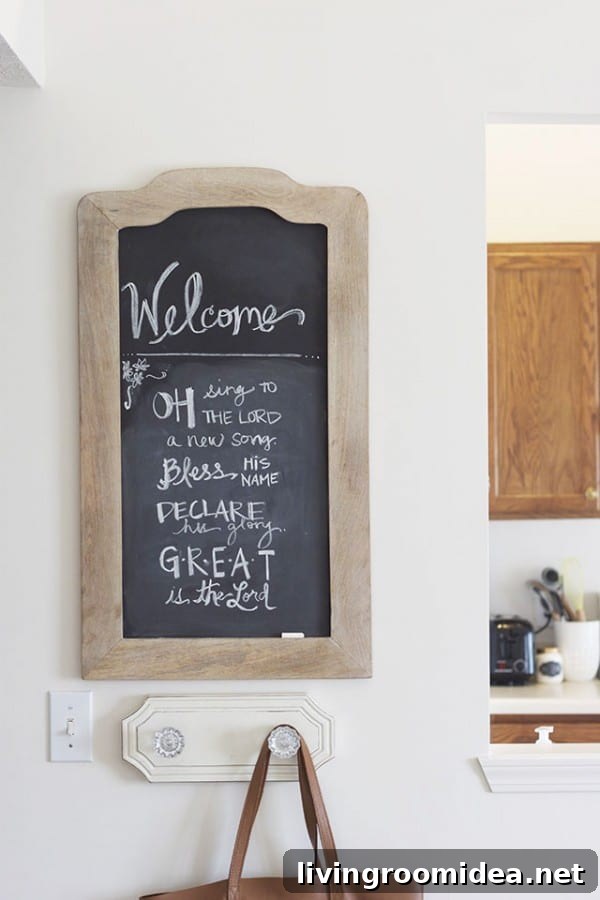 Welcome
OH sing to
THE LORD
a new song.
Bless HIS
NAME
DECLARE
his glory.
G·R·E·A·T
is the Lord
livingroomidea.net